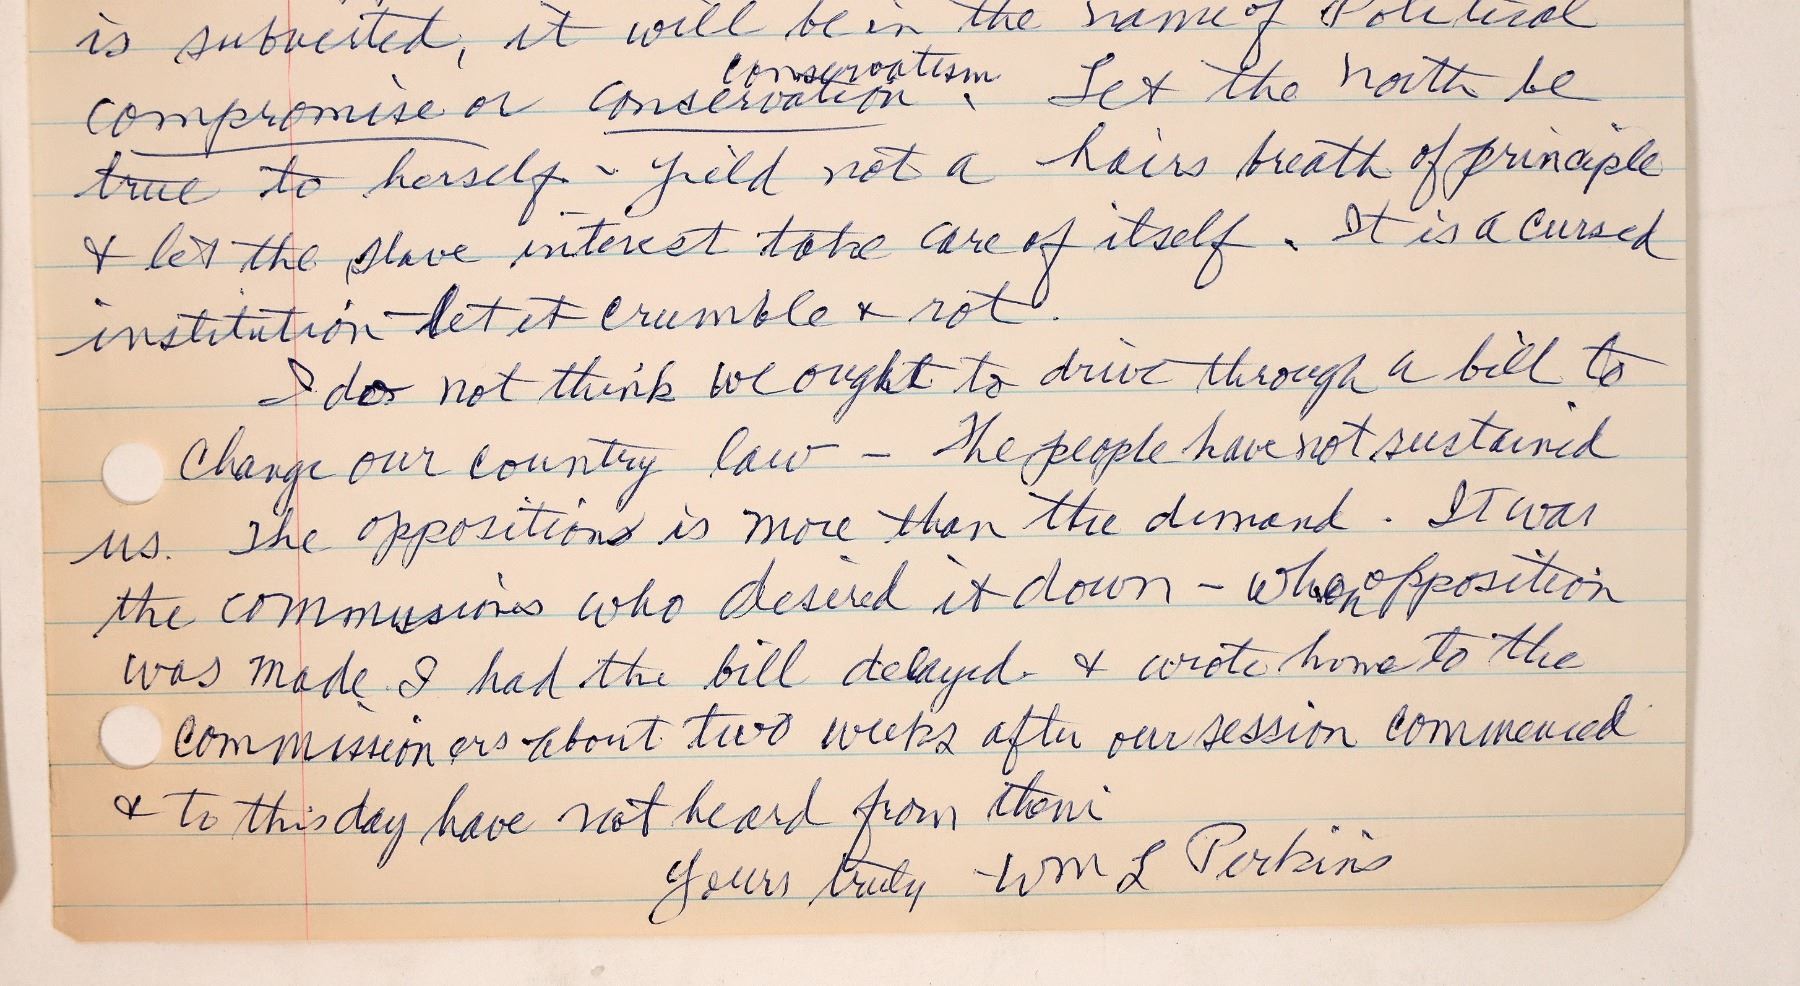 is subverted, it will be in the name of Political
conservatism
compromise or conservation. Let the north be
true to herself - yield not a hairs breath of principle
& let the slave interest take care of itself. It is a cursed
institution - let it crumble & rot.
I do not think we ought to drive through a bill to
Change our country law - The people have not sustained
us. The oppositions is more than the demand. It was
the commissions who desired it down - when opposition
was made I had the bill delayed & wrote home to the
commissioners about two weeks after our session commenced
& to this day have not heard from them
Yours truly Wm L Perkins